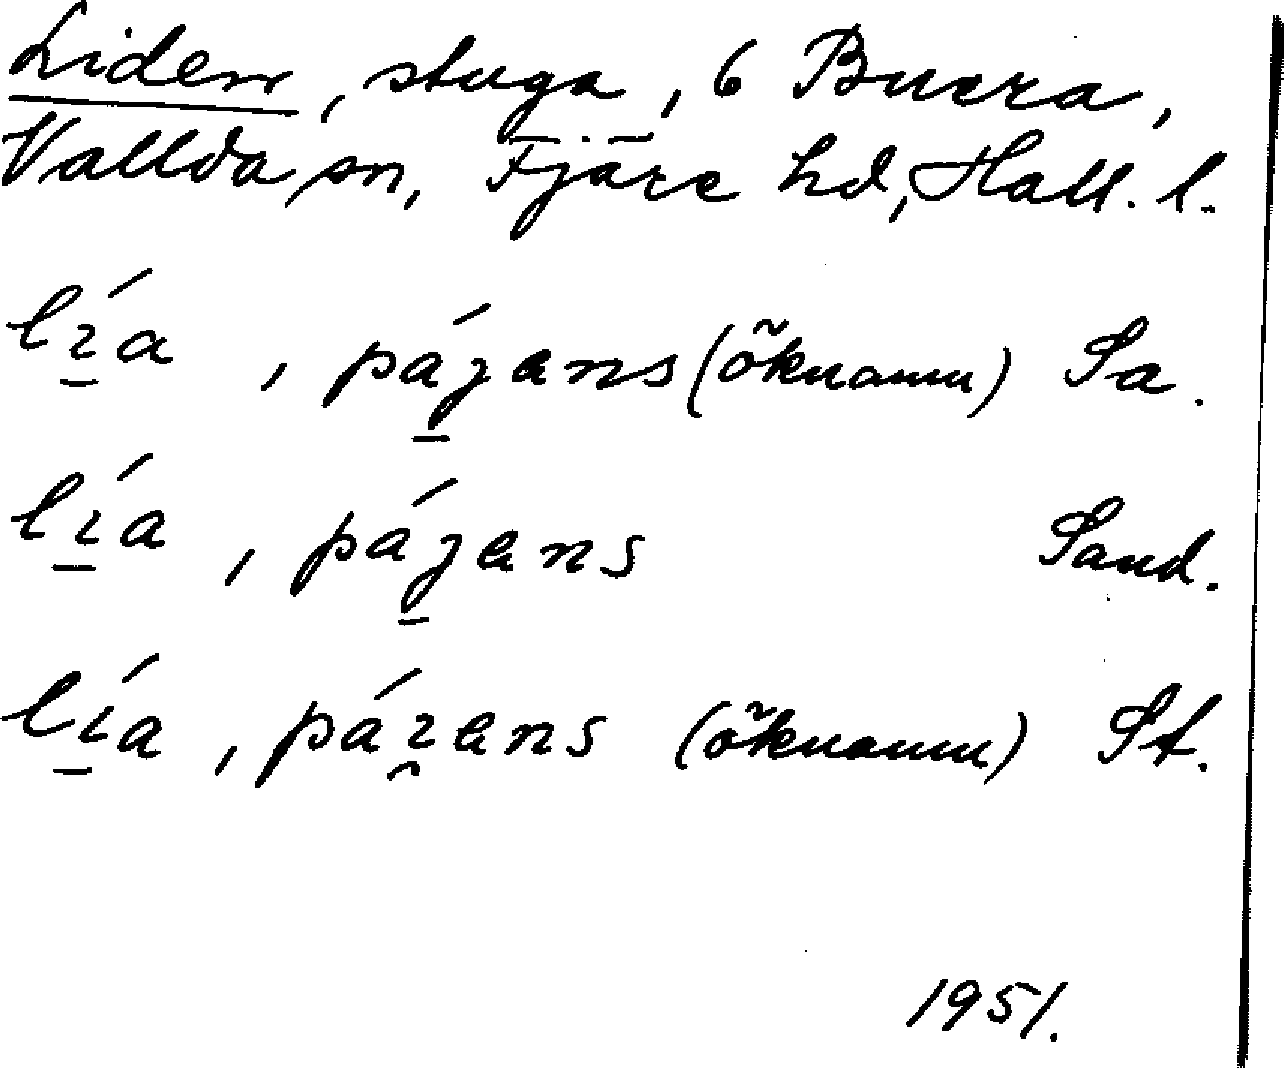 Liden, stuga, 6 Buera,
Vallda sn, Fjäre hd, Hall. l.
lı̱́a, pág̱ans (öknamn) Sa.
lı̱́a, pág̱ans Sand.
lı̱́a, páɿ̯ans (öknamn) St.
1951.